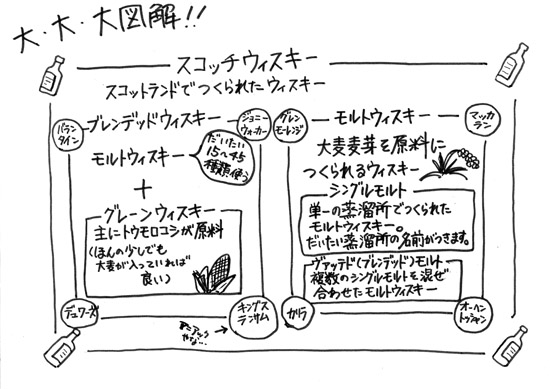 大・大・大図解!!
スコッチウィスキー
スコットランドでつくられたウィスキー
バランタイン
ブレンデッドウィスキー
ジョニーウォーカー
モルトウィスキー
だいたい
15〜45
種類使う
+
グレーンウィスキー
主にトウモロコシが原料
(ほんの少しでも
大麦が入っていれば
良い)
デュワーズ
キングスランサム
グレンモーレンジ
モルトウィスキー
マッカラン
大麦麦芽を原料に
つくられるウィスキー
シングルモルト
単一の蒸溜所でつくられた
モルトウィスキー。
だいたい蒸溜所の名前がつきます。
ヴァッテド(ブレンデッド)モルト
複数のシングルモルトを混ぜ
合わせたモルトウィスキー
カリラ
オーヘントッシャン